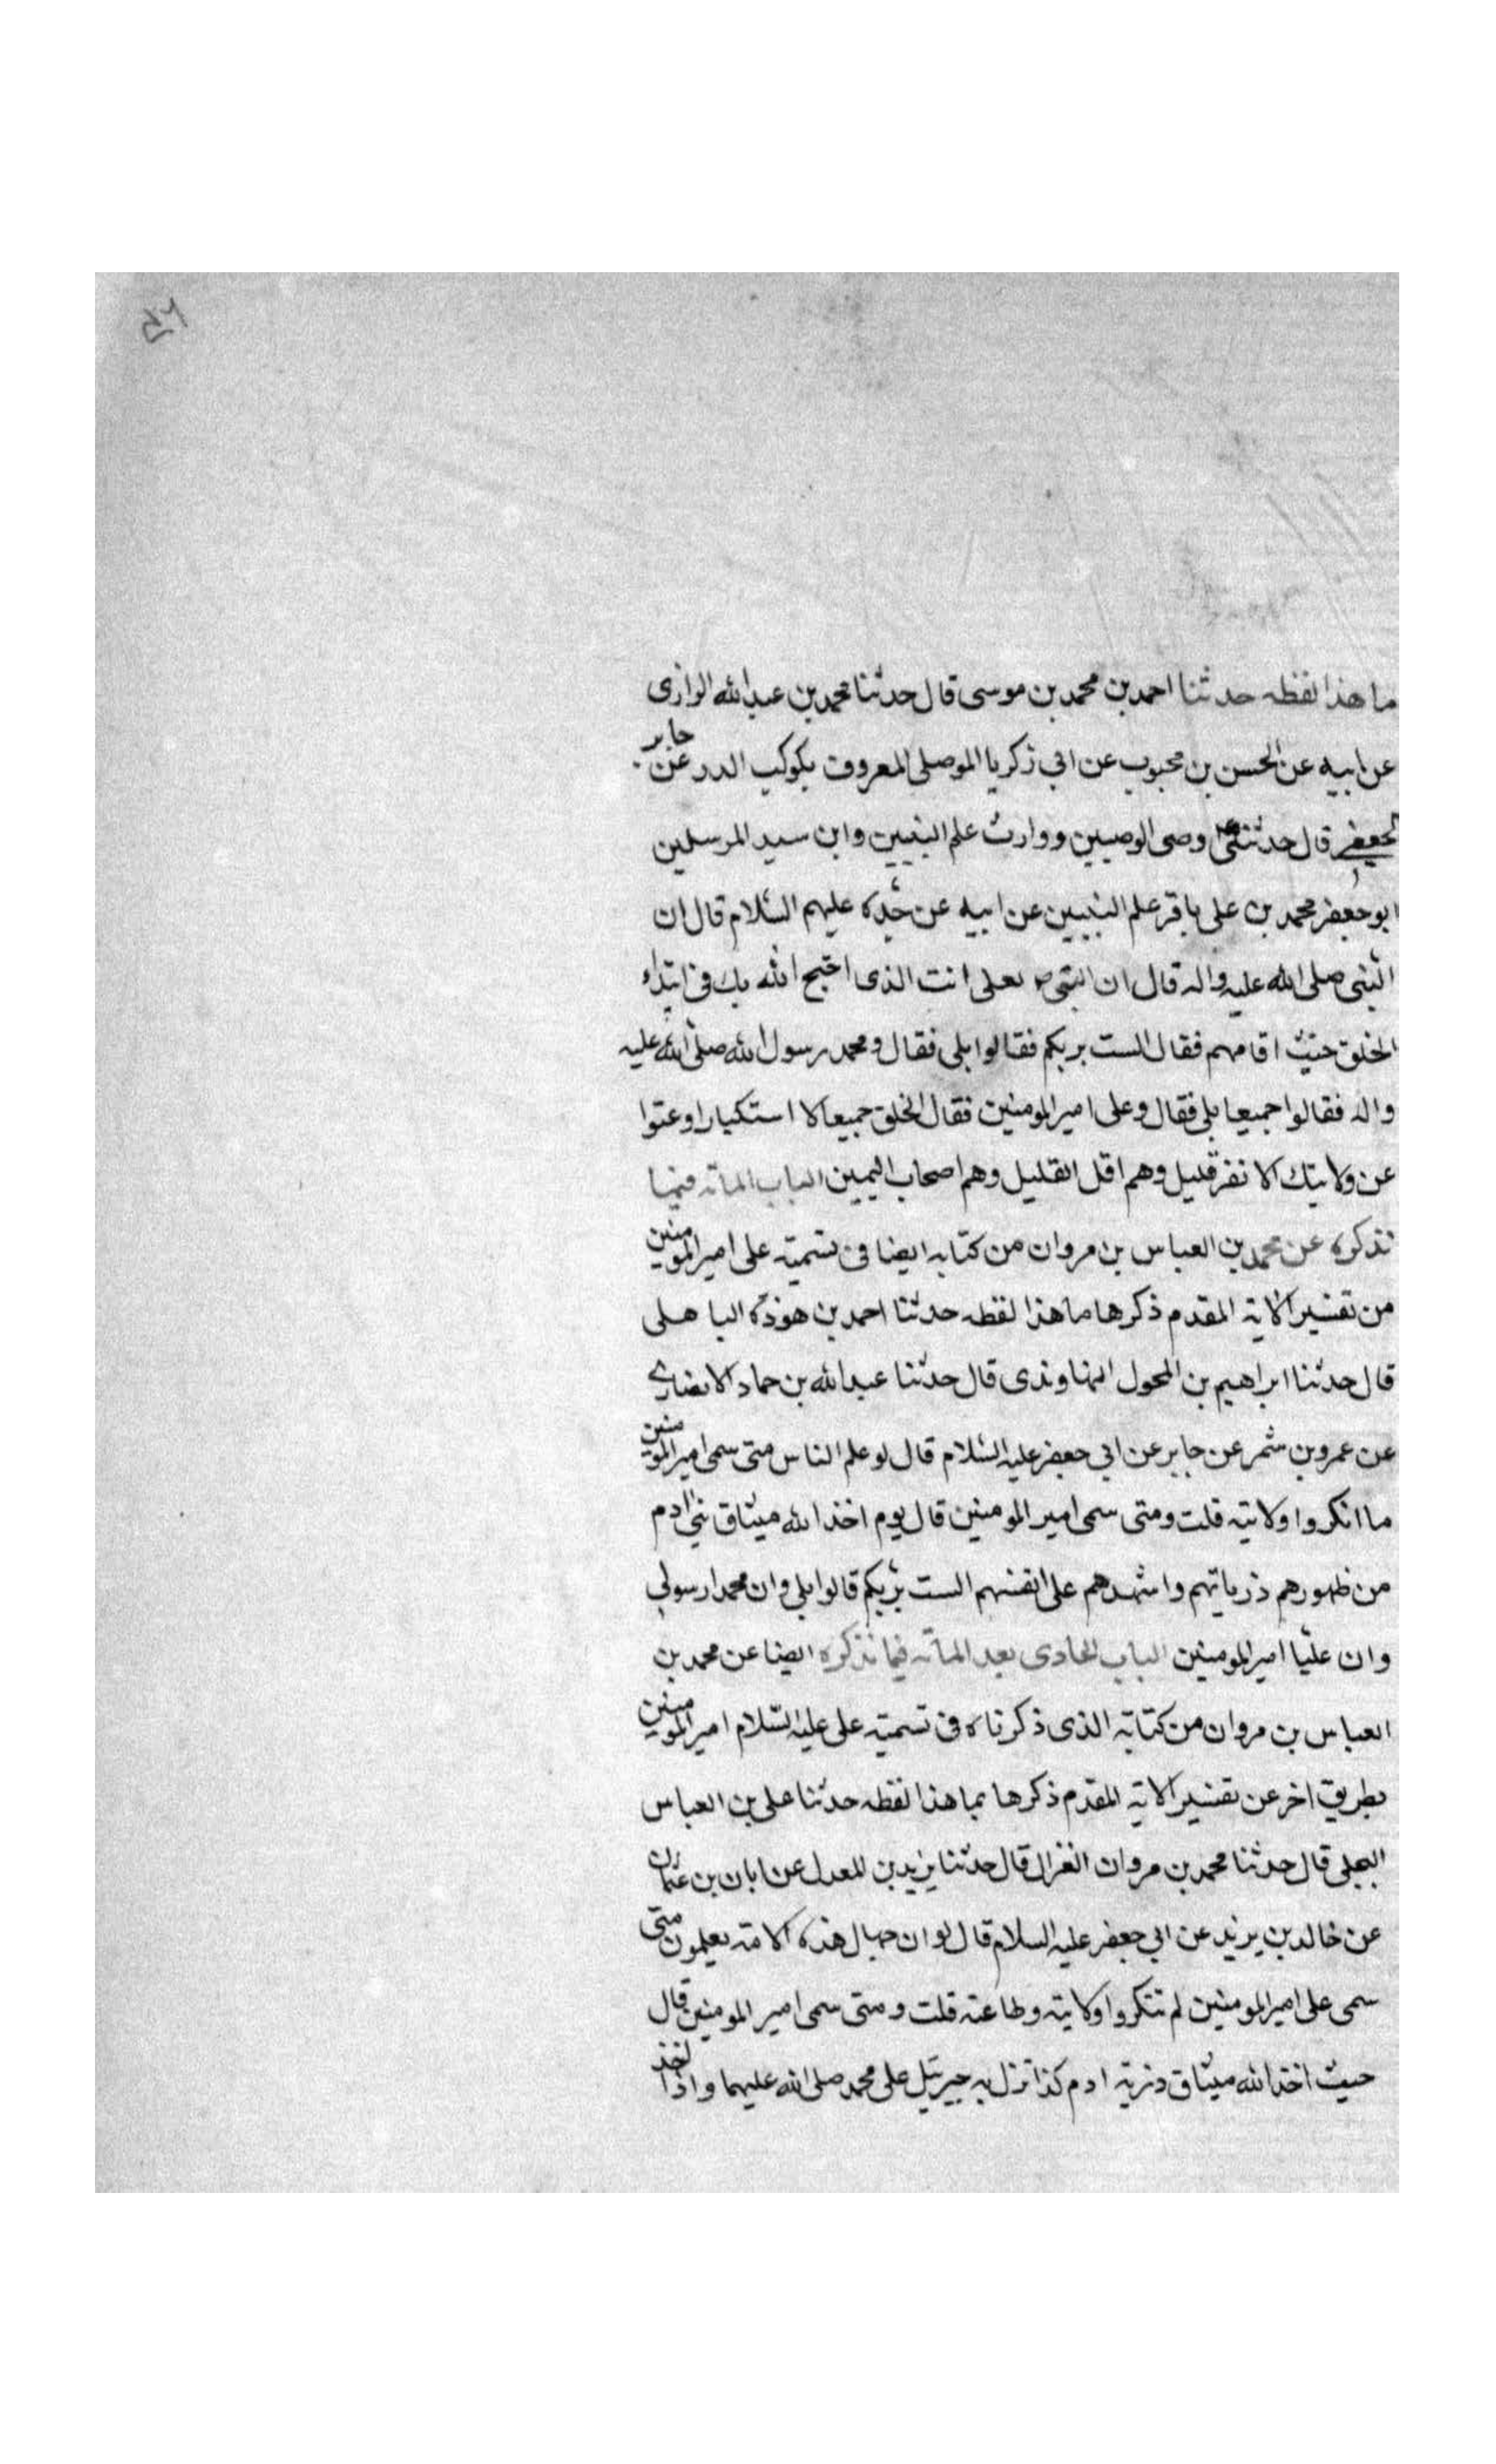 ما هذا لفظه حدثنا احمد بن محمد بن موسى قال حدثنا محمد بن عبد الله الرازى
عن ابيه عن الحسن بن محبوب عن ابي زكريا الموصلى المعروف بكوكب الدر عن جابر
الجعفى قال حدثنى وصى الوصيين ووارث علم النبيين وابن سيد المرسلين
ابو جعفر محمد بن على باقر علم النبيين عن ابيه عن جده عليهم السلام قال ان
النبى صلى الله عليه واله قال لعلى انت الذى احتج الله بك فى ابتداء
الخلق حيث اقامهم فقال الست بربكم فقالوا بلى فقال ومحمد رسول الله صلى الله عليه
واله فقالوا جميعا بلى فقال وعلى امير المومنين فقال الخلق جميعا لا استكبارا وعتوا
عن ولايتك الا نفر قليل وهم اقل القليل وهم اصحاب اليمين الباب المائه فيما
نذكره عن محمد بن العباس بن مروان من كتابه ايضا فى تسميته على امير المومنين
من تفسير الايه المقدم ذكرها ما هذا لفظه حدثنا احمد بن هوذه الباهلى
قال حدثنا ابراهيم بن المحول النهاوندى قال حدثنا عبد الله بن حماد الانصارى
عن عمرو بن شمر عن جابر عن ابي جعفر عليه السلام قال لو علم الناس متى سمى امير المومنين
ما انكروا ولايته قلت ومتى سمى امير المومنين قال يوم اخذ الله ميثاق بني ادم
من ظهورهم ذرياتهم واشهدهم على انفسهم الست بربكم قالوا بلى وان محمدا رسولى
وان عليّا امير المومنين الباب الحادى بعد المائه فيما نذكره ايضا عن محمد بن
العباس بن مروان من كتابه الذى ذكرناه فى تسميته على عليه السّلام امير المومنين
بطريق اخر عن تفسير الايه المقدم ذكرها بما هذا لفظه حدثنا على بن العباس
البجلى قال حدثنا محمد بن مروان الغزال قال حدثنا يزيد بن المعدل عن ابان بن عثمان
عن خالد بن يزيد عن ابي جعفر عليه السلام قال لو ان جهال هذه الامة يعلمون متى
سمى على امير المومنين لم تنكروا ولايته وطاعته قلت ومتى سمى امير المومنين قال
حيث اخذ الله ميثاق ذرية ادم كذا نزل به جبرئيل على محمد صلى الله عليهما واذا اخذ